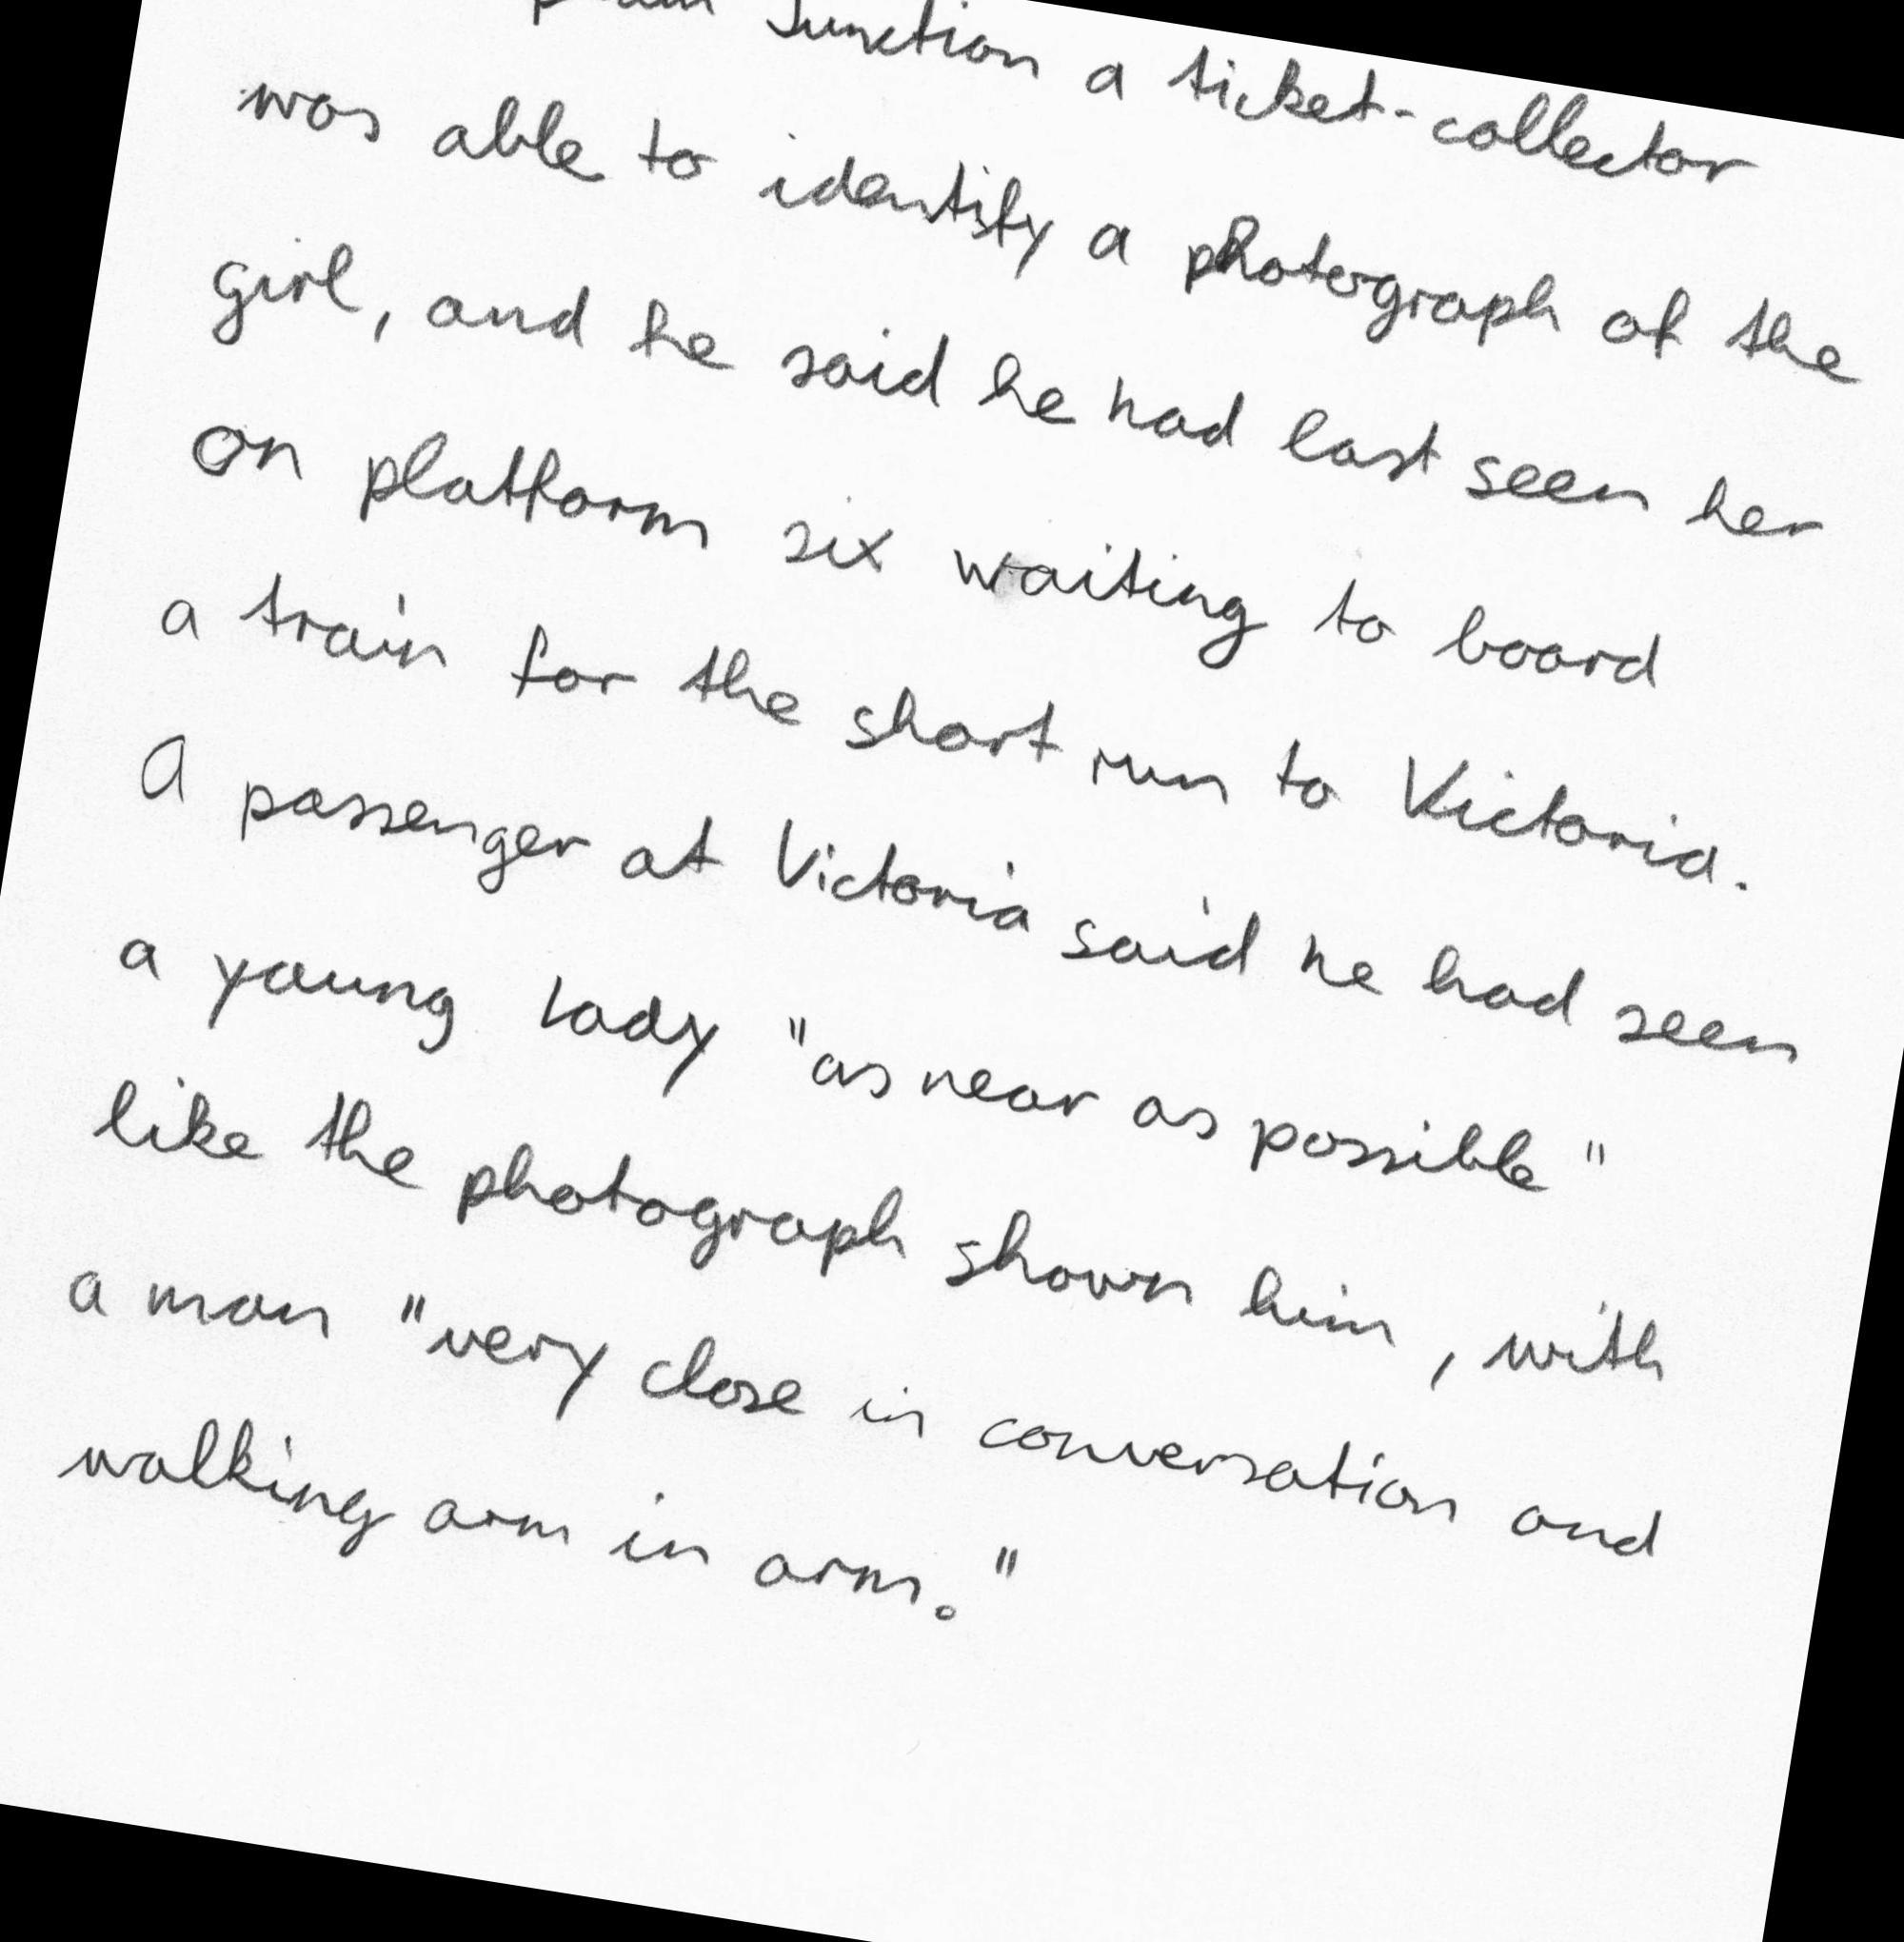 Junction a ticket-collector
was able to identify a photograph of the
girl, and he said he had last seen her
on platform six waiting to board
a train for the short run to Victoria.
A passenger at Victoria said he had seen
a young lady "as near as possible"
like the photograph shown him, with
a man "very close in conversation and
walking arm in arm."